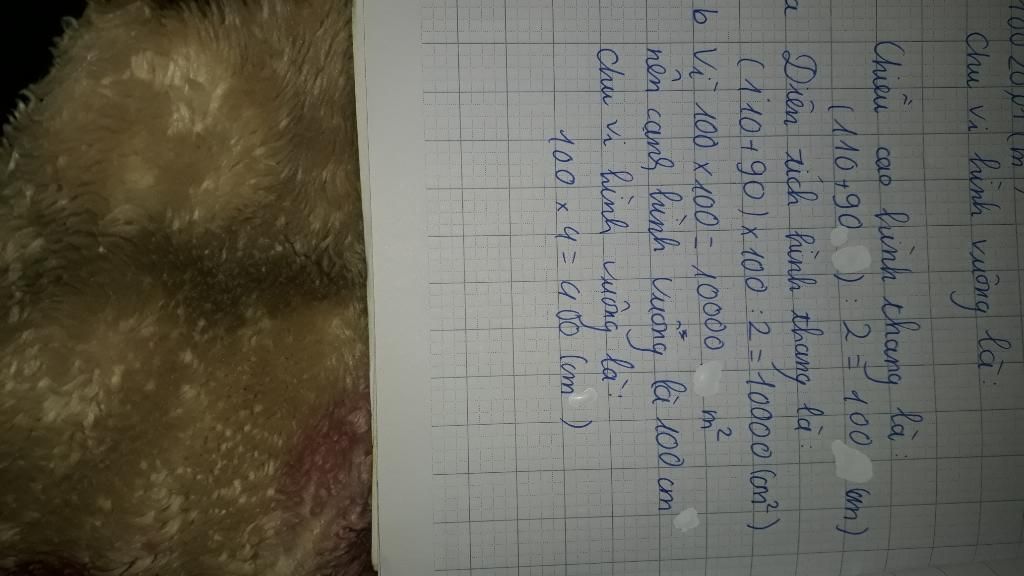 Chu vi hình vuông là:
Chiều cao hình thang là:
(110+90) : 2 = 100 (cm)
a Diện tích hình thang là:
(110+90) x 100 : 2 = 10000 (cm²)
b Vì 100 x 100 = 10000 m²
nên cạnh hình vuông là 100 cm
Chu vi hình vuông là:
100 x 4 = 400 (cm)